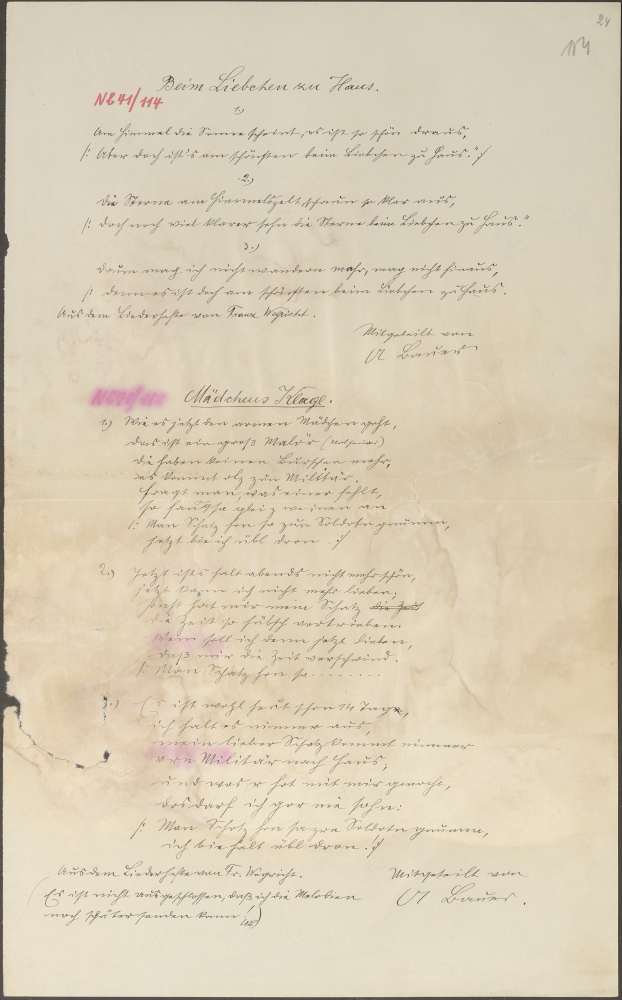 24
114
Beim Liebchen zu Haus.
NL 41/114
1.)
Am Himmel die Sonne scheint, es ist so schön draus,
/: Aber doch ist's am schönsten beim Liebchen zu Haus." :/
2.)
Die Sterne am Himmelszelt, schaun so klar aus,
/: Doch noch viel klarer sehn die Sterne beim Liebchen zu Haus."
3.)
Drum mag ich nicht wandern mehr, mag nicht hinaus,
/: denn es ist doch am schönsten beim Liebchen zu Haus.
Aus dem Liederhefte von
Mitgeteilt von
A Bauer
Mädchens Klage.
1.) Wie es jetzt den armen Mädchen geht,
das ist ein groß Malör
die haben keinen Burschen mehr,
es kommt als zum Militär.
Fragt man, was einer fehlt,
so fangt sie gleiz weinen an
/: Man Schatz hen se zum Soldotn gnumma,
jetzt bie ich übl dron :/
2.) Jetzt ists halt abends nicht mehr schön,
jetzt kann ich nicht mehr lieben;
sonst hat mir mein Schatz die Zeit
die Zeit so hübsch vertrieben.
Wem soll ich denn jetzt lieben,
daß mir die Zeit verschwind.
/: Man Schatz hen se . . . . . . .
3.) Es ist wohl heut schon 14 Tage,
ich halt es nimmer aus,
mein lieber Schatz kommt nimmer
vom Militär nach Haus,
und was er hot mit mir gemocht,
dos darf ich gor nie sohn:
/: Man Schatz hen se zon Soldotn gnumma,
ich bie halt übl dron. :/
Aus dem Liederhefte von Fr.
Mitgeteilt von
(Es ist nicht ausgeschlossen, daß ich die Melodien
A Bauer.
noch später senden kann